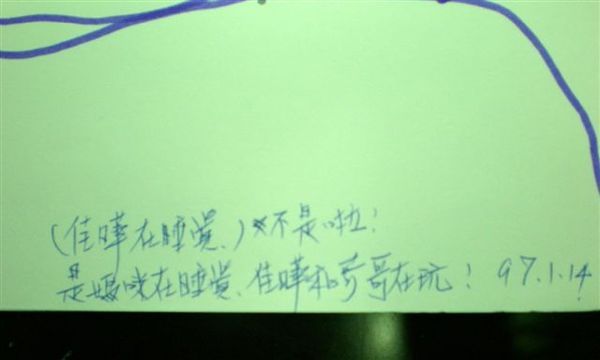 (佳曄在睡覺.)×不是啦!
是媽咪在睡覺.佳曄和哥哥在玩! 97.1.14